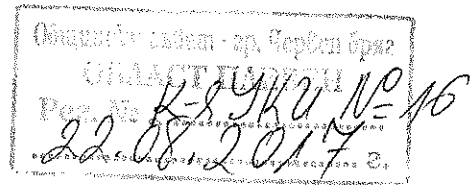 Общински съвет - гр. Червен бряг
ОБЛАСТ ПЛЕВЕН
Рег. № К-ЗУКИ № 16
22.08.2017 г.